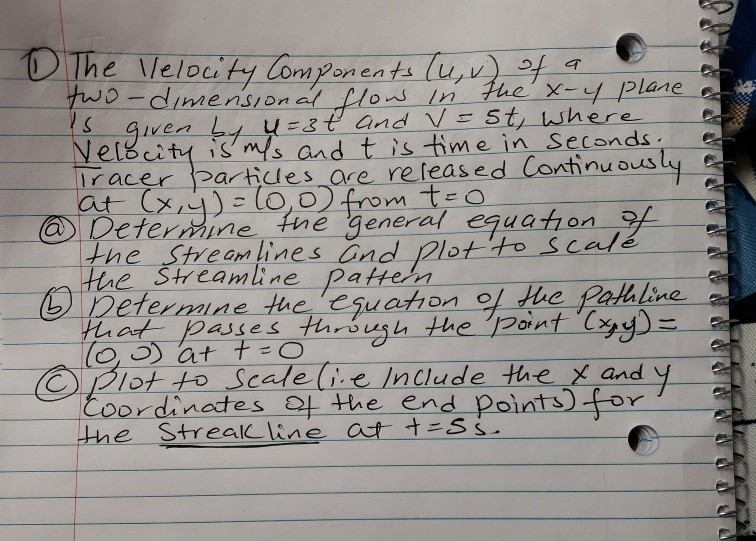 ① The Velocity Components (u,v) of a
two-dimensional flow in the x-y plane
is given by u=3t and V = 5t, where
Velocity is m/s and t is time in seconds.
Tracer particles are released Continuously
at (x,y) = (0,0) from t=0
ⓐ Determine the general equation of
the streamlines and plot to scale
the streamline pattern
ⓑ Determine the equation of the Pathline
that passes through the point (x,y) =
(0,0) at t=0
ⓒ Plot to scale (i.e Include the x and y
Coordinates of the end points) for
the Streakline at t=5s.